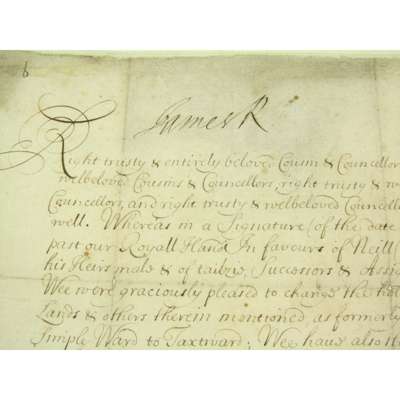 8
James R
Right trusty & entirely beloved Cousin & Councellor
welbeloved Cousins & Councellors, right trusty & w
Councellors, and right trusty & welbeloved Councello
well. Whereas in a Signature (of the date
past our Royall Hand In favours of Neill
his Heirs male & of tailzie, Successors & Assig
Wee were graciously pleased to change the hol
Lands & others therein mentioned, as formerly
Simple Ward to Taxtward; Wee have also th